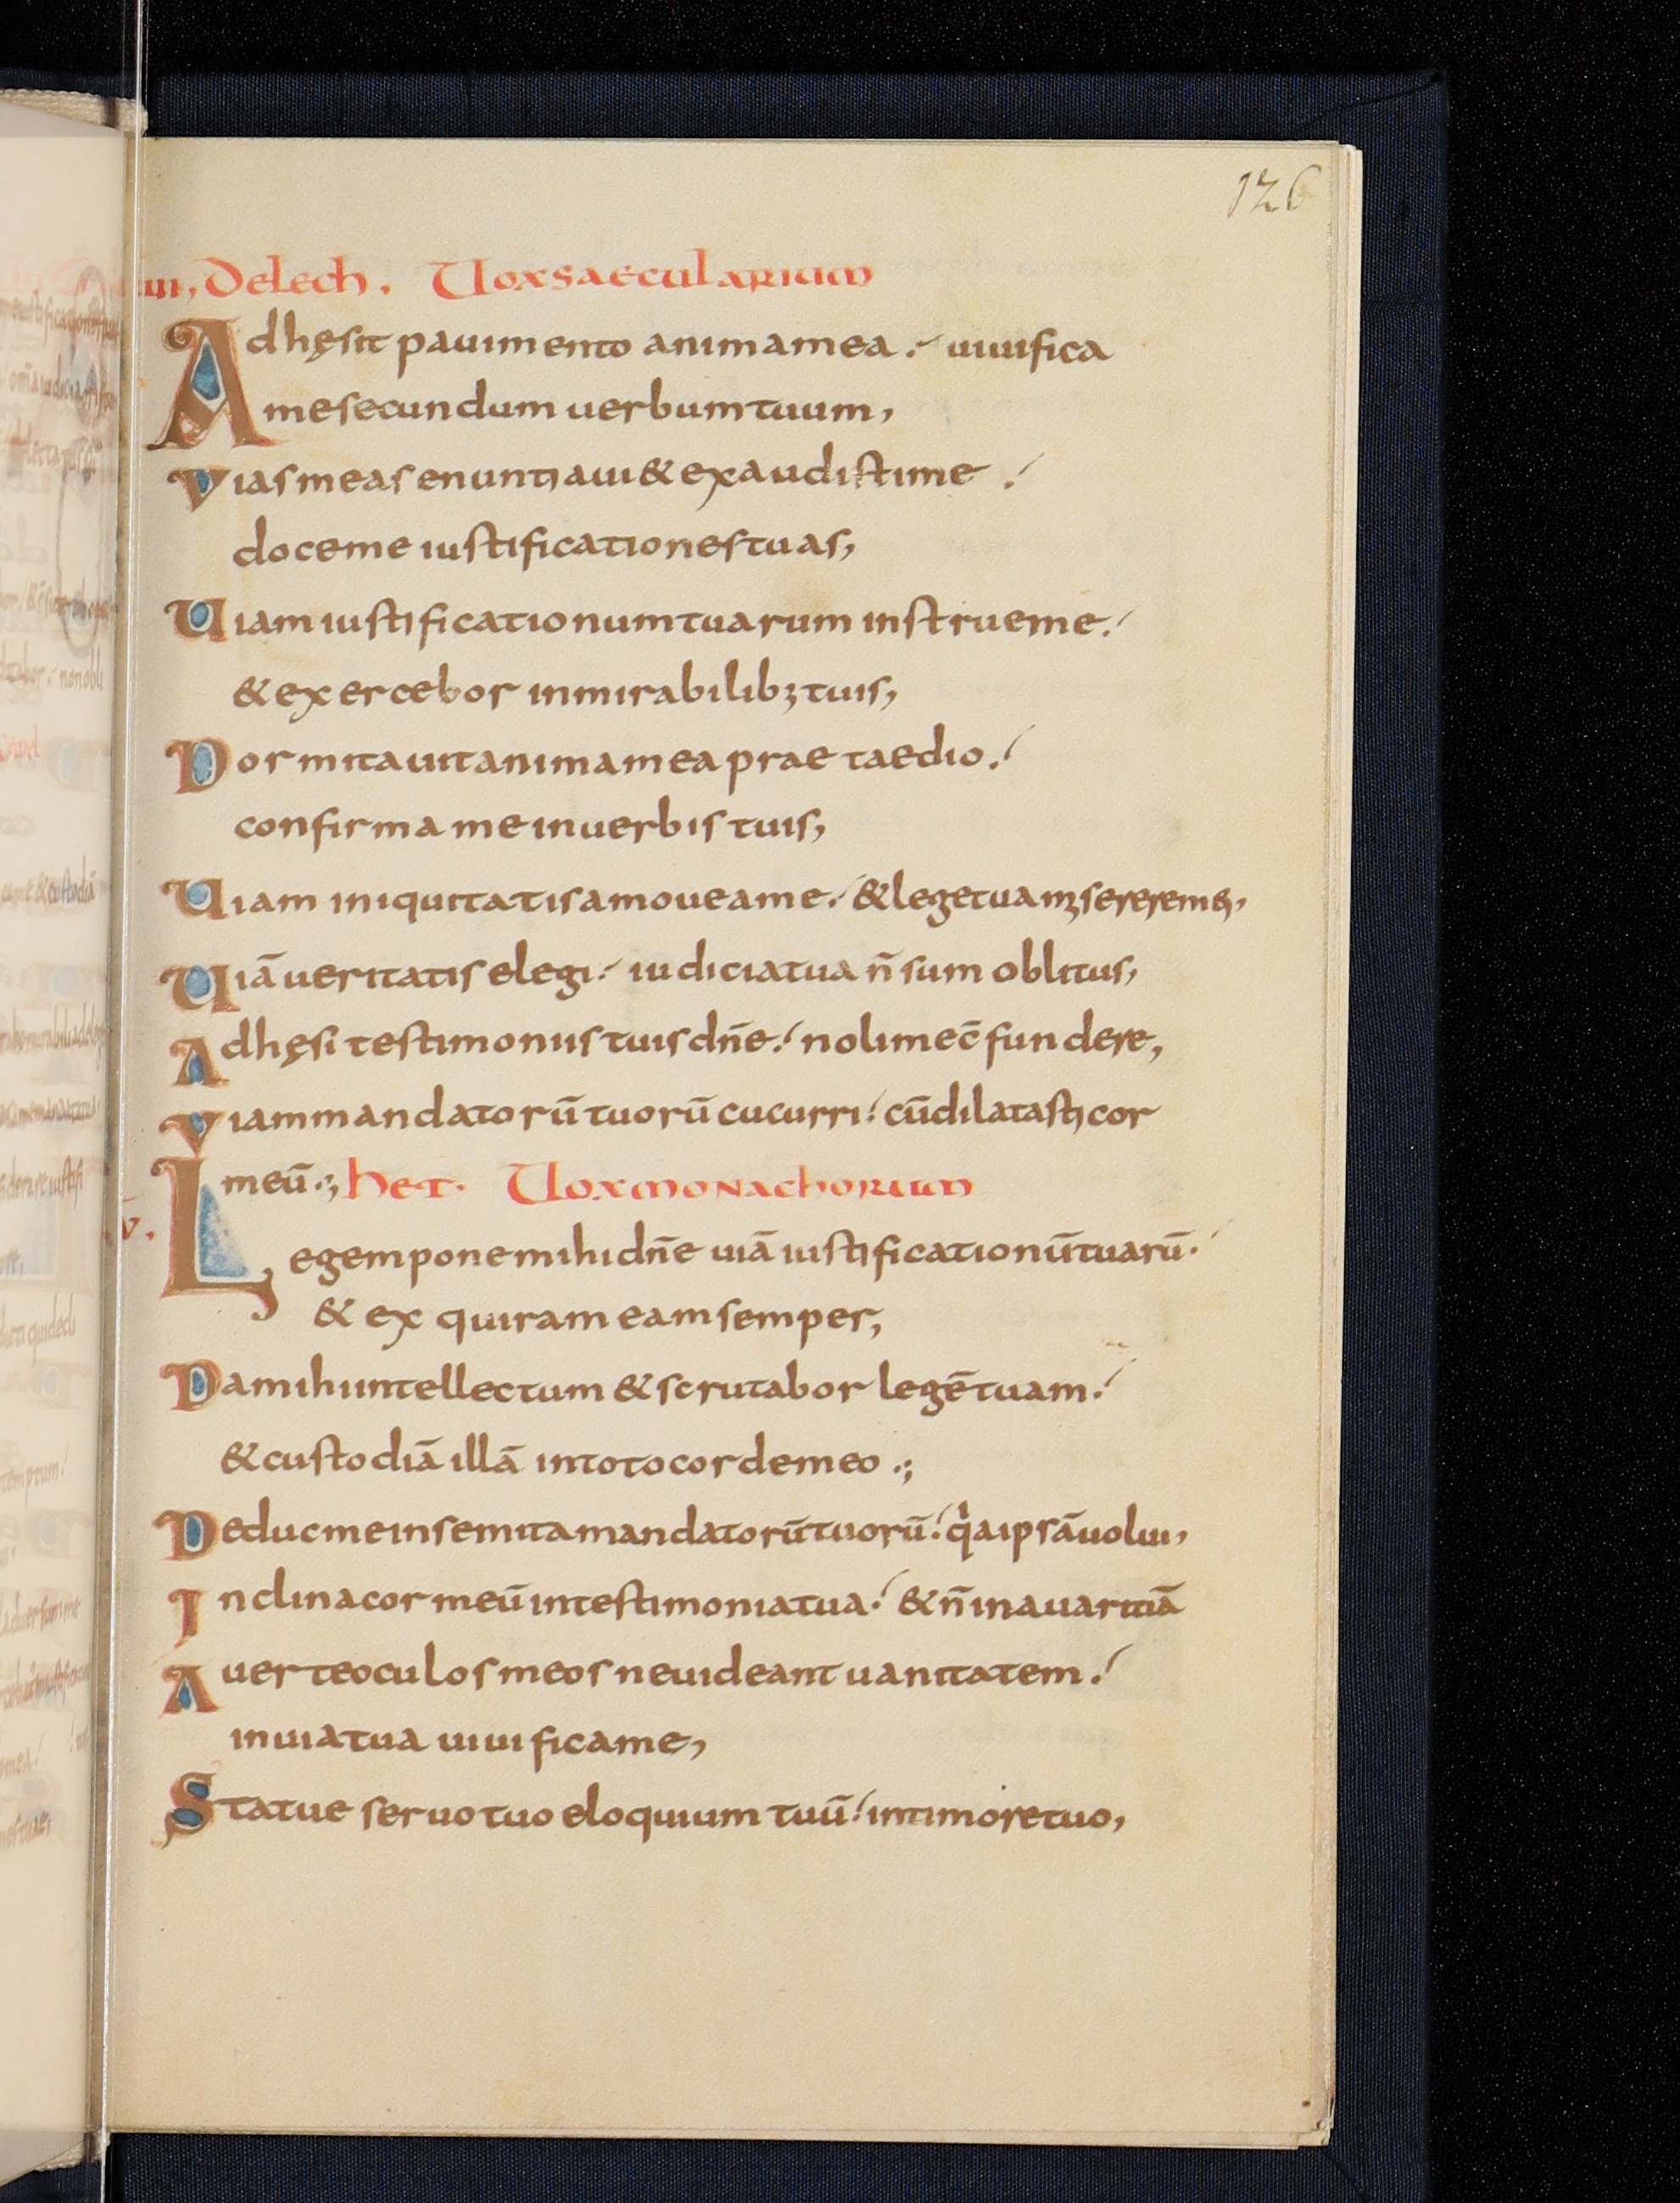 126
iiii, Delech. Vox saecularium
Adhęsit pauimento anima mea. uiuifica
me secundum uerbum tuum,
Vias meas enuntiaui & exaudisti me.
doce me iustificationes tuas,
Uiam iustificationum tuarum instrue me.
& exercebor in mirabilibꝫ tuis,
Dormitauit anima mea prae taedio.
confirma me in uerbis tuis,
Uiam iniquitatis amoue a me. & lege tua miserere mei,
Uiā ueritatis elegi. iudicia tua n̄ sum oblitus,
Adhęsi testimoniis tuis dn̄e. noli me c̄fundere,
Viam mandatorū tuorū cucurri. cū dilatasti cor
meū.; het. Vox monachorum
v.
Legem pone mihi dn̄e uiā iustificationū tuarū.
& exquiram eam semper,
Da mihi intellectum & scrutabor legē tuam.
& custodiā illā in toto corde meo.;
Deduc me in semita mandatorū tuorū. qa ipsā uolui,
Inclina cor meū in testimonia tua. & n̄ in auaritiā
Auerte oculos meos ne uideant uanitatem.
in uia tua uiuifica me,
Statue seruo tuo eloquium tuū. in timore tuo,